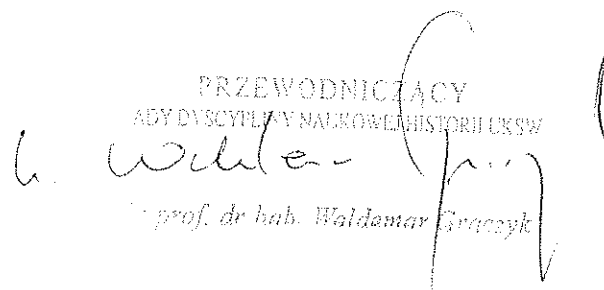 PRZEWODNICZĄCY
ADY DYSCYPLINY NAUKOWEJ HISTORII UKSW
prof. dr hab. Waldemar Graczyk